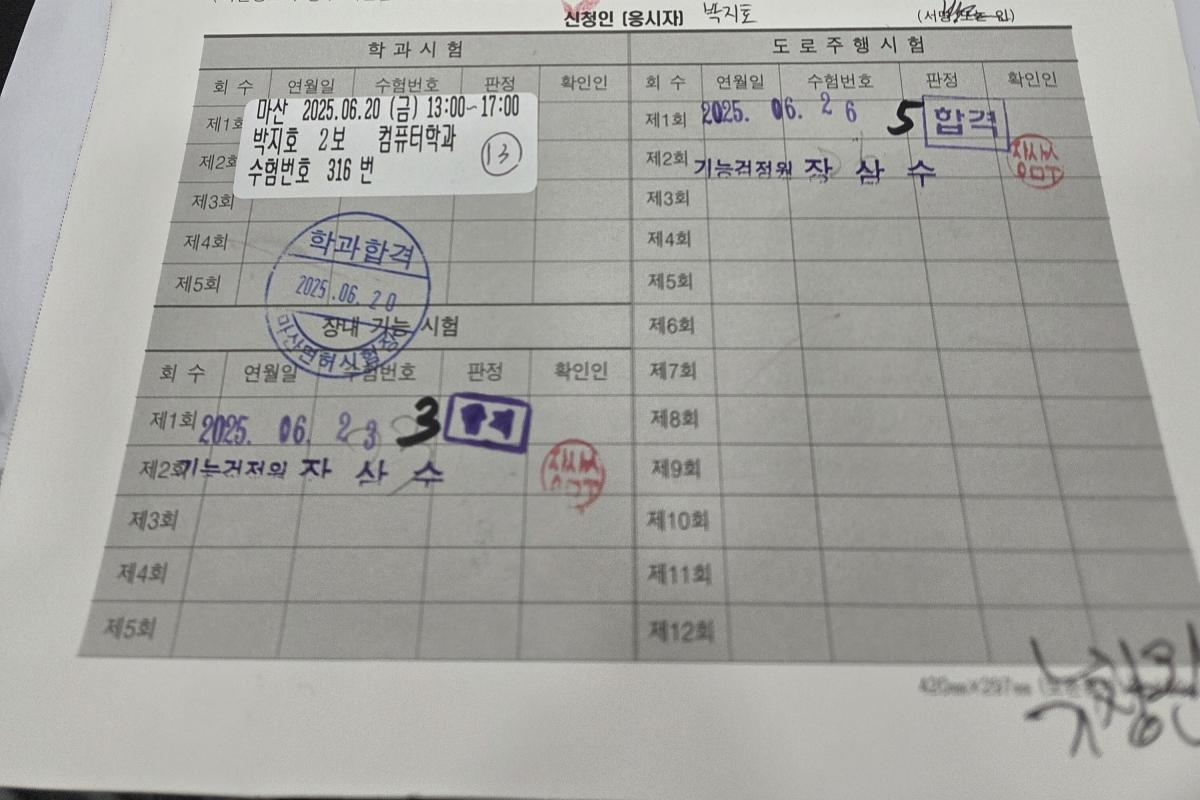 신청인 [응시자] 박지호 (서명 또는 인)
학 과 시 험
회 수 연월일 수험번호 판정 확인인
제1회
마산 2025.06.20 (금) 13:00~17:00
박지호 2보 컴퓨터학과
수험번호 316 번
13
제2회
제3회
제4회
제5회
학과합격
2025.06.20
마산면허시험장
장내 기능 시험
회 수 연월일 수험번호 판정 확인인
제1회 2025. 06. 23 3
제2회 기능검정원 장 삼 수
제3회
제4회
제5회
도 로 주 행 시 험
회 수 연월일 수험번호 판정 확인인
제1회 2025. 06. 26 5 합격
제2회 기능검정원 장 삼 수
제3회
제4회
제5회
제6회
제7회
제8회
제9회
제10회
제11회
제12회
420㎜×297㎜